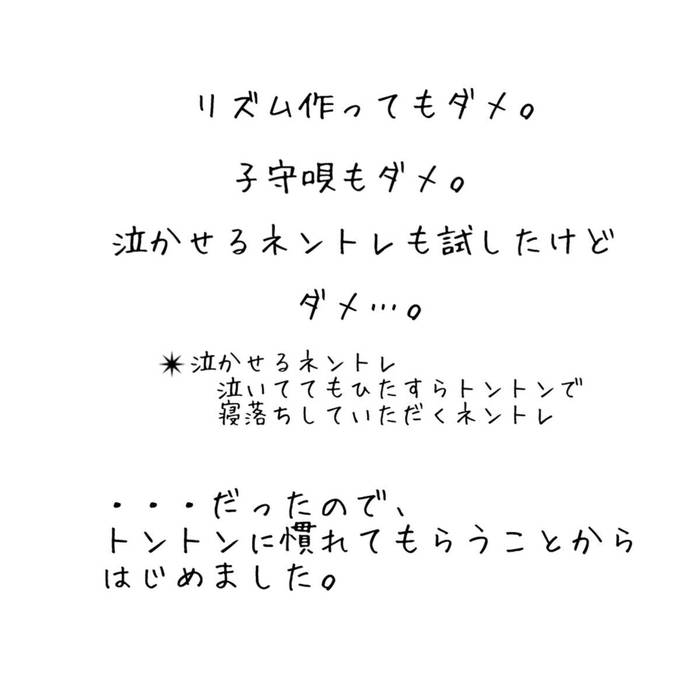 リズム作ってもダメ。
子守唄もダメ。
泣かせるネントレも試したけど
ダメ…。
✴泣かせるネントレ
泣いててもひたすらトントンで
寝落ちしていただくネントレ
・・・だったので、
トントンに慣れてもらうことから
はじめました。